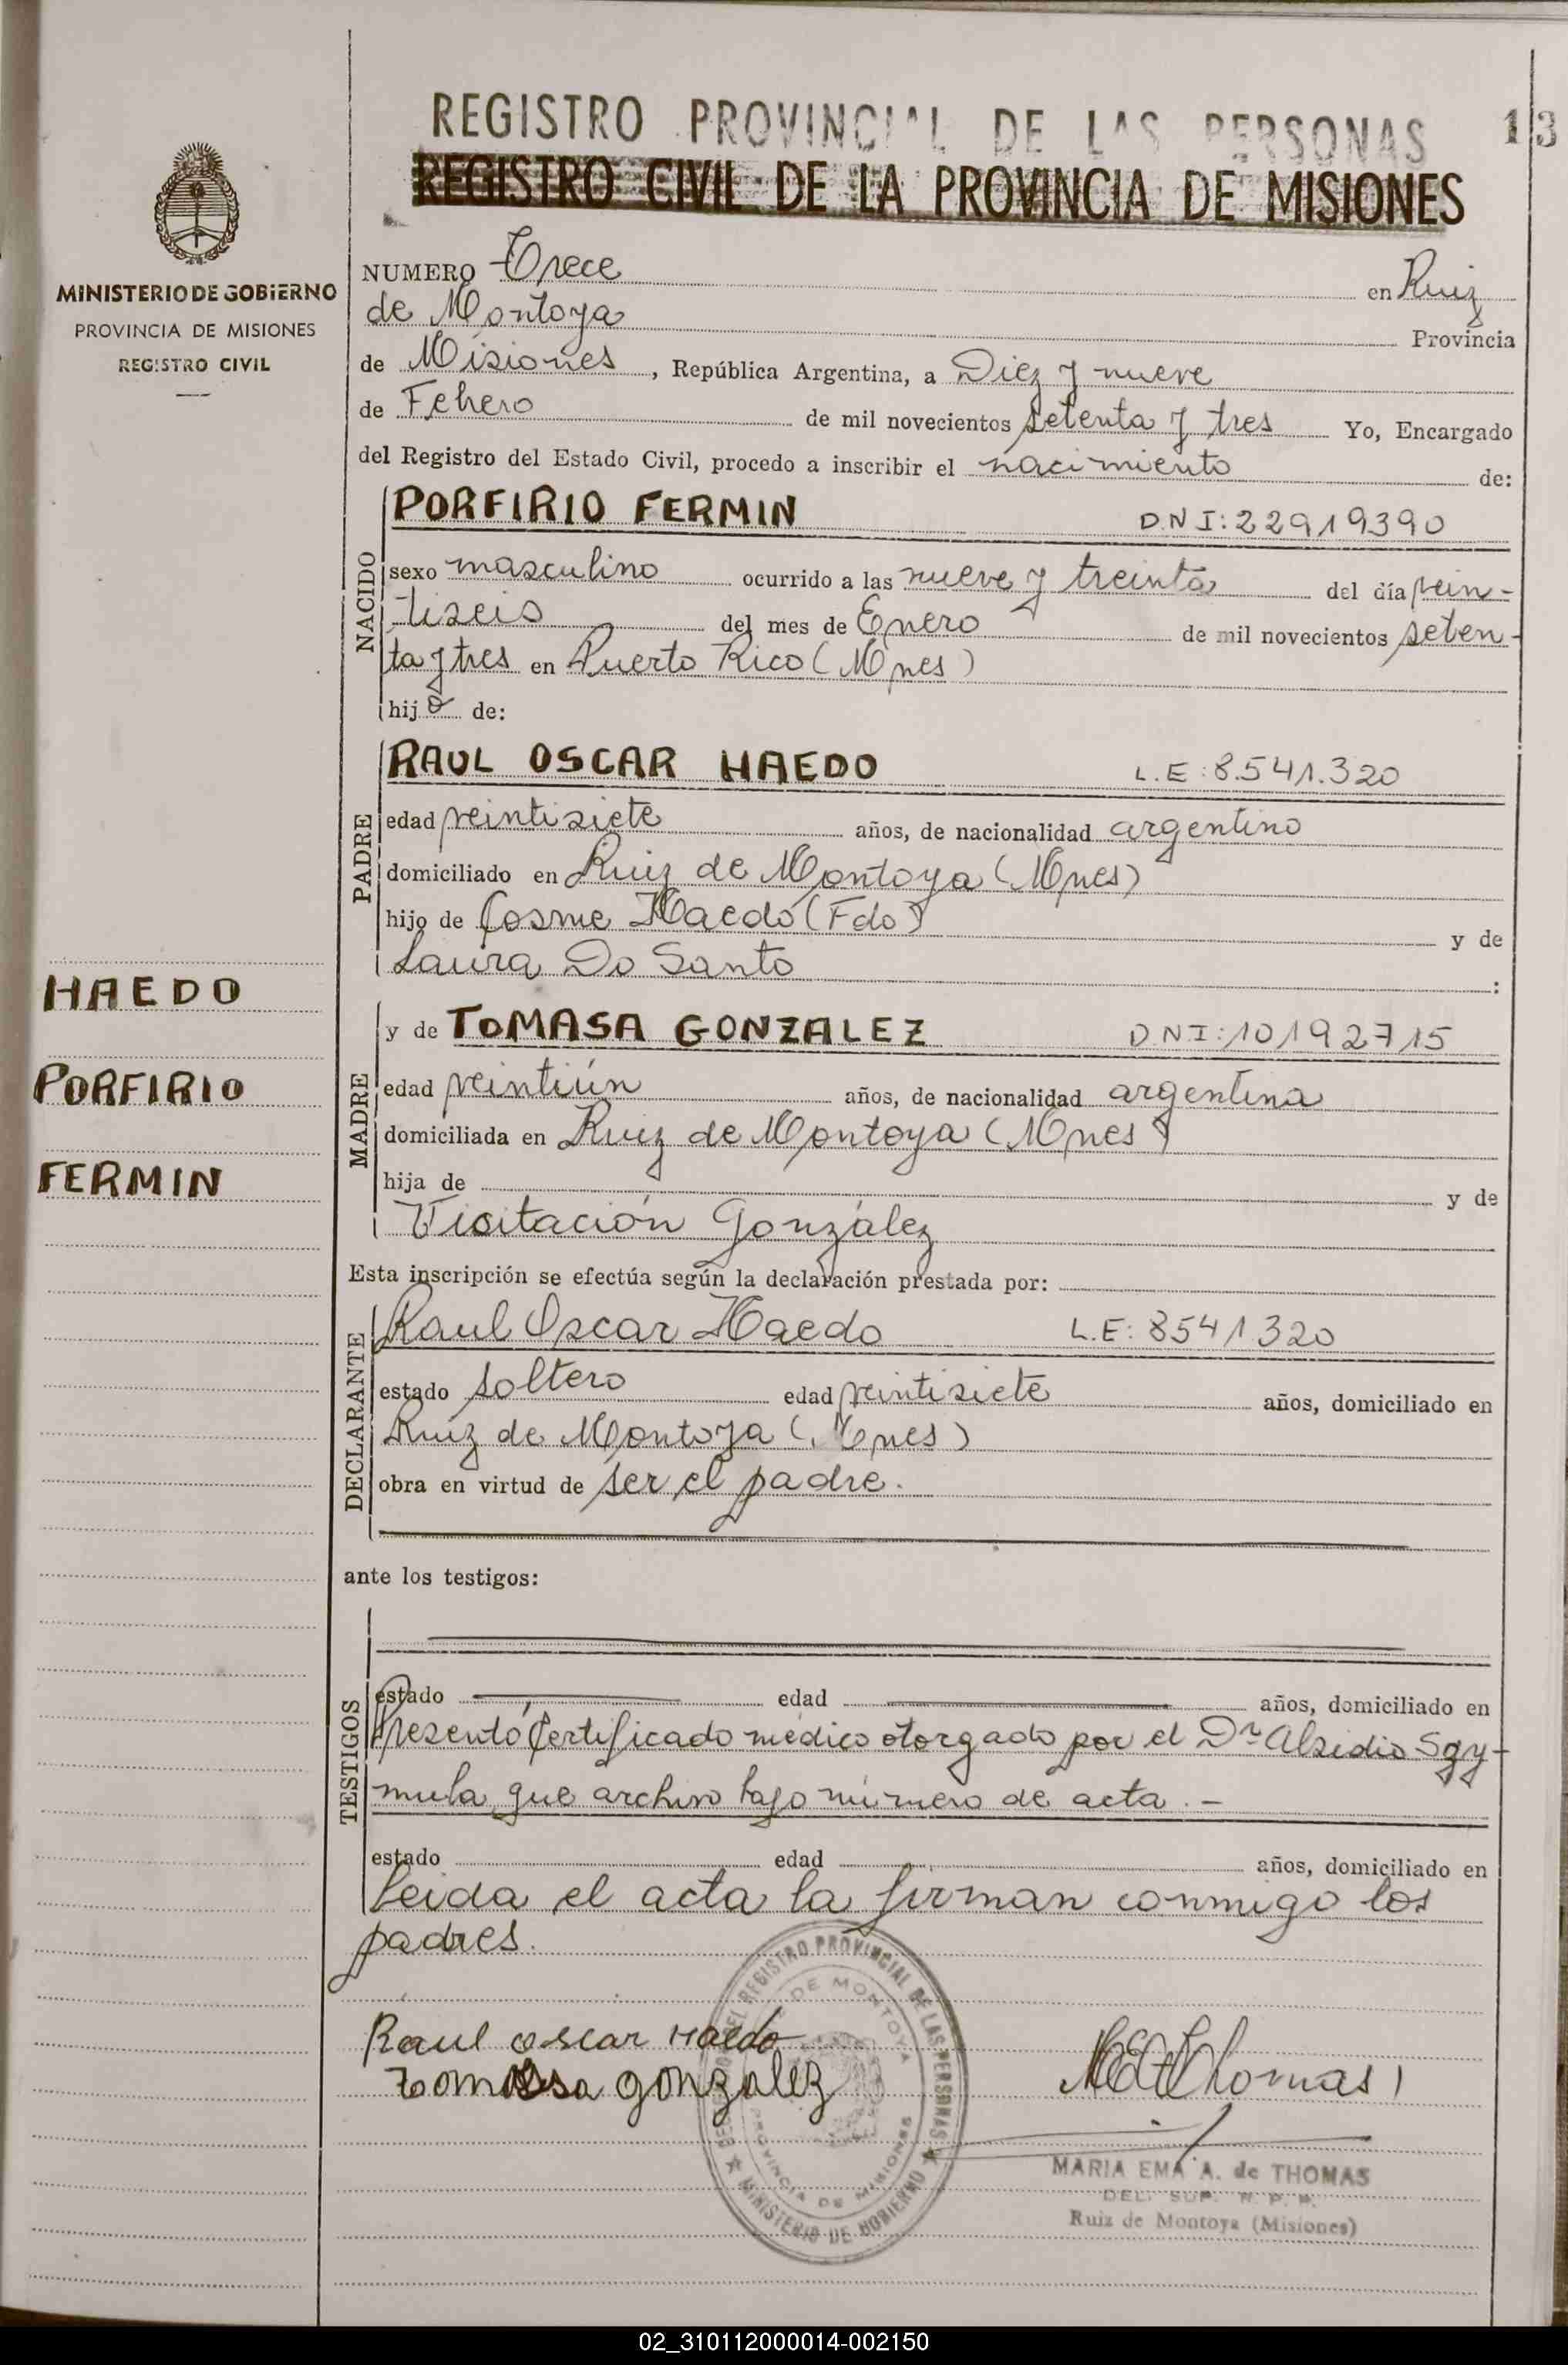 REGISTRO PROVINCIAL DE LAS PERSONAS 13
REGISTRO CIVIL DE LA PROVINCIA DE MISIONES
MINISTERIO DE GOBIERNO
PROVINCIA DE MISIONES
REGISTRO CIVIL
NUMERO Trece en Ruiz
de Montoya Provincia
de Misiones, República Argentina, a Diez y nueve
de Febrero de mil novecientos setenta y tres Yo, Encargado
del Registro del Estado Civil, procedo a inscribir el nacimiento de:
NACIDO
PORFIRIO FERMIN DNI: 22919390
sexo masculino ocurrido a las nueve y treinta del día vein-
tiseis del mes de Enero de mil novecientos seten-
ta y tres en Puerto Rico (Mnes)
hijo de:
PADRE
RAUL OSCAR HAEDO L.E: 8.541.320
edad veintisiete años, de nacionalidad argentino
domiciliado en Ruiz de Montoya (Mnes)
hijo de Cosme Haedo (Fdo) y de
Laura Do Santo :
HAEDO
PORFIRIO
FERMIN
MADRE
y de TOMASA GONZALEZ DNI: 10192715
edad veintiún años, de nacionalidad argentina
domiciliada en Ruiz de Montoya (Mnes)
hija de y de
Visitación González
Esta inscripción se efectúa según la declaración prestada por:
DECLARANTE
Raul Oscar Haedo L.E: 8541320
estado soltero edad veintisiete años, domiciliado en
Ruiz de Montoya (Mnes)
obra en virtud de ser el padre.
ante los testigos:
TESTIGOS
estado edad años, domiciliado en
Presentó Certificado médico otorgado por el Dr Alsidio Sgy-
mula que archivo bajo número de acta. -
estado edad años, domiciliado en
Leida el acta la firman conmigo los
padres.
Raul oscar Haedo
Tomasa gonzalez
Thomas
DEL REGISTRO PROVINCIAL DE LAS PERSONAS
DE MONTOYA
PROVINCIA DE MISIONES
MINISTERIO DE GOBIERNO
MARIA EMA A. de THOMAS
DEL. SUP. R. P. P.
Ruiz de Montoya (Misiones)
02_310112000014-002150